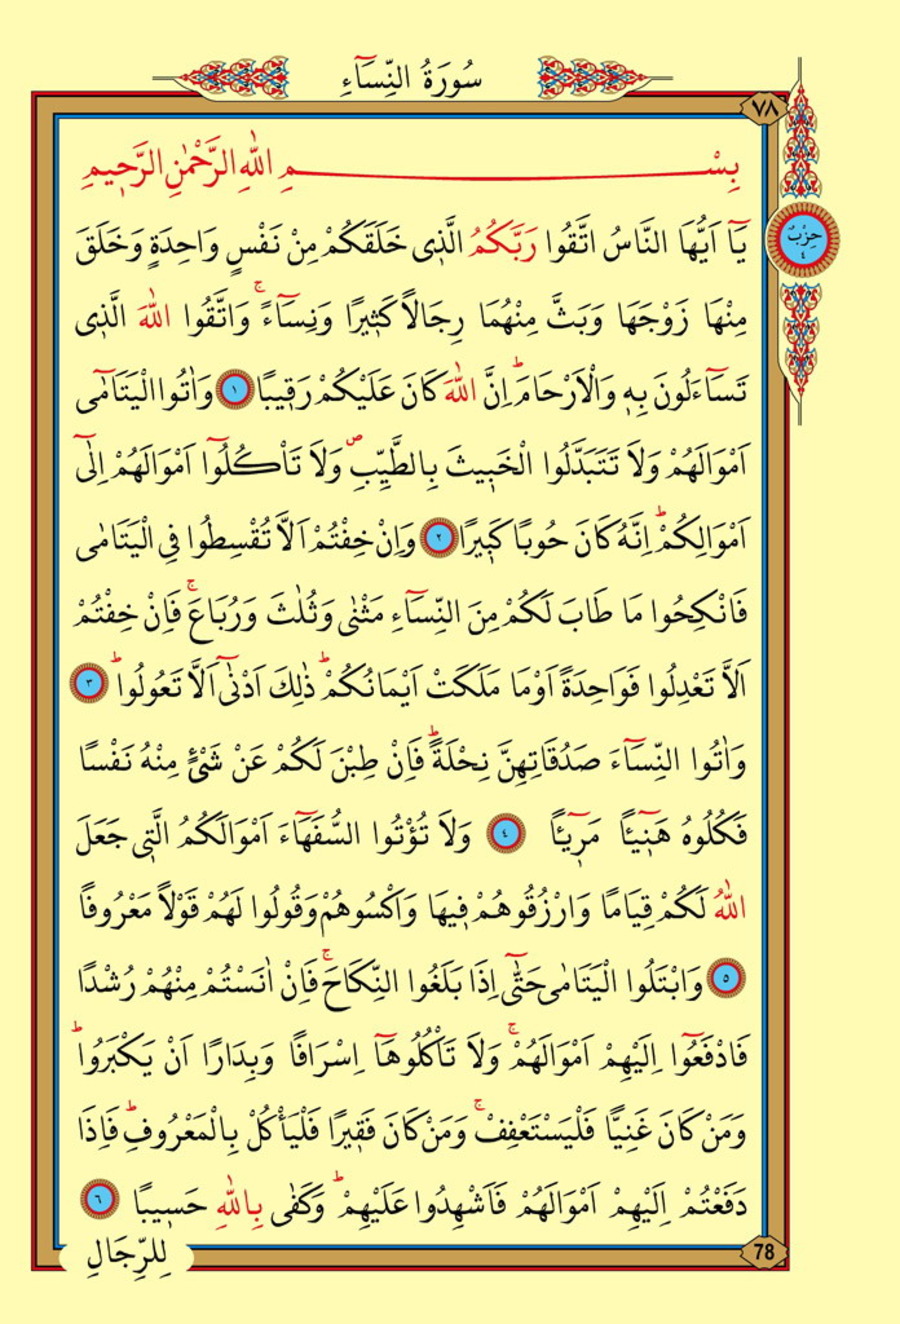 سُورَةُ النِّسَٓاءِ
٧٨
بِسْمِ اللّٰهِ الرَّحْمٰنِ الرَّح۪يمِ
حِزْبٌ
٤
يَٓا اَيُّهَا النَّاسُ اتَّقُوا رَبَّكُمُ الَّذ۪ي خَلَقَكُمْ مِنْ نَفْسٍ وَاحِدَةٍ وَخَلَقَ
مِنْهَا زَوْجَهَا وَبَثَّ مِنْهُمَا رِجَالًا كَث۪يرًا وَنِسَٓاءًۚ وَاتَّقُوا اللّٰهَ الَّذ۪ي
تَسَٓاءَلُونَ بِه۪ وَالْاَرْحَامَۜ اِنَّ اللّٰهَ كَانَ عَلَيْكُمْ رَق۪يبًا ١ وَاٰتُوا الْيَتَامٰٓى
اَمْوَالَهُمْ وَلَا تَتَبَدَّلُوا الْخَب۪يثَ بِالطَّيِّبِۖ وَلَا تَأْكُلُٓوا اَمْوَالَهُمْ اِلٰٓى
اَمْوَالِكُمْۜ اِنَّهُ كَانَ حُوبًا كَب۪يرًا ٢ وَاِنْ خِفْتُمْ اَلَّا تُقْسِطُوا فِي الْيَتَامٰى
فَانْكِحُوا مَا طَابَ لَكُمْ مِنَ النِّسَٓاءِ مَثْنٰى وَثُلٰثَ وَرُبَاعَۚ فَاِنْ خِفْتُمْ
اَلَّا تَعْدِلُوا فَوَاحِدَةً اَوْ مَا مَلَكَتْ اَيْمَانُكُمْۜ ذٰلِكَ اَدْنٰٓى اَلَّا تَعُولُواۜ ٣
وَاٰتُوا النِّسَٓاءَ صَدُقَاتِهِنَّ نِحْلَةًۜ فَاِنْ طِبْنَ لَكُمْ عَنْ شَيْءٍ مِنْهُ نَفْسًا
فَكُلُوهُ هَن۪ٓيـًٔا مَر۪ٓيـًٔا ٤ وَلَا تُؤْتُوا السُّفَهَٓاءَ اَمْوَالَكُمُ الَّت۪ي جَعَلَ
اللّٰهُ لَكُمْ قِيَامًا وَارْزُقُوهُمْ ف۪يهَا وَاكْسُوهُمْ وَقُولُوا لَهُمْ قَوْلًا مَعْرُوفًا
٥ وَابْتَلُوا الْيَتَامٰى حَتّٰٓى اِذَا بَلَغُوا النِّكَاحَۚ فَاِنْ اٰنَسْتُمْ مِنْهُمْ رُشْدًا
فَادْفَعُٓوا اِلَيْهِمْ اَمْوَالَهُمْۚ وَلَا تَأْكُلُوهَٓا اِسْرَافًا وَبِدَارًا اَنْ يَكْبَرُواۜ
وَمَنْ كَانَ غَنِيًّا فَلْيَسْتَعْفِفْۚ وَمَنْ كَانَ فَق۪يرًا فَلْيَأْكُلْ بِالْمَعْرُوفِۜ فَاِذَا
دَفَعْتُمْ اِلَيْهِمْ اَمْوَالَهُمْ فَاَشْهِدُوا عَلَيْهِمْۜ وَكَفٰى بِاللّٰهِ حَس۪يبًا ٦
لِلرِّجَالِ
78